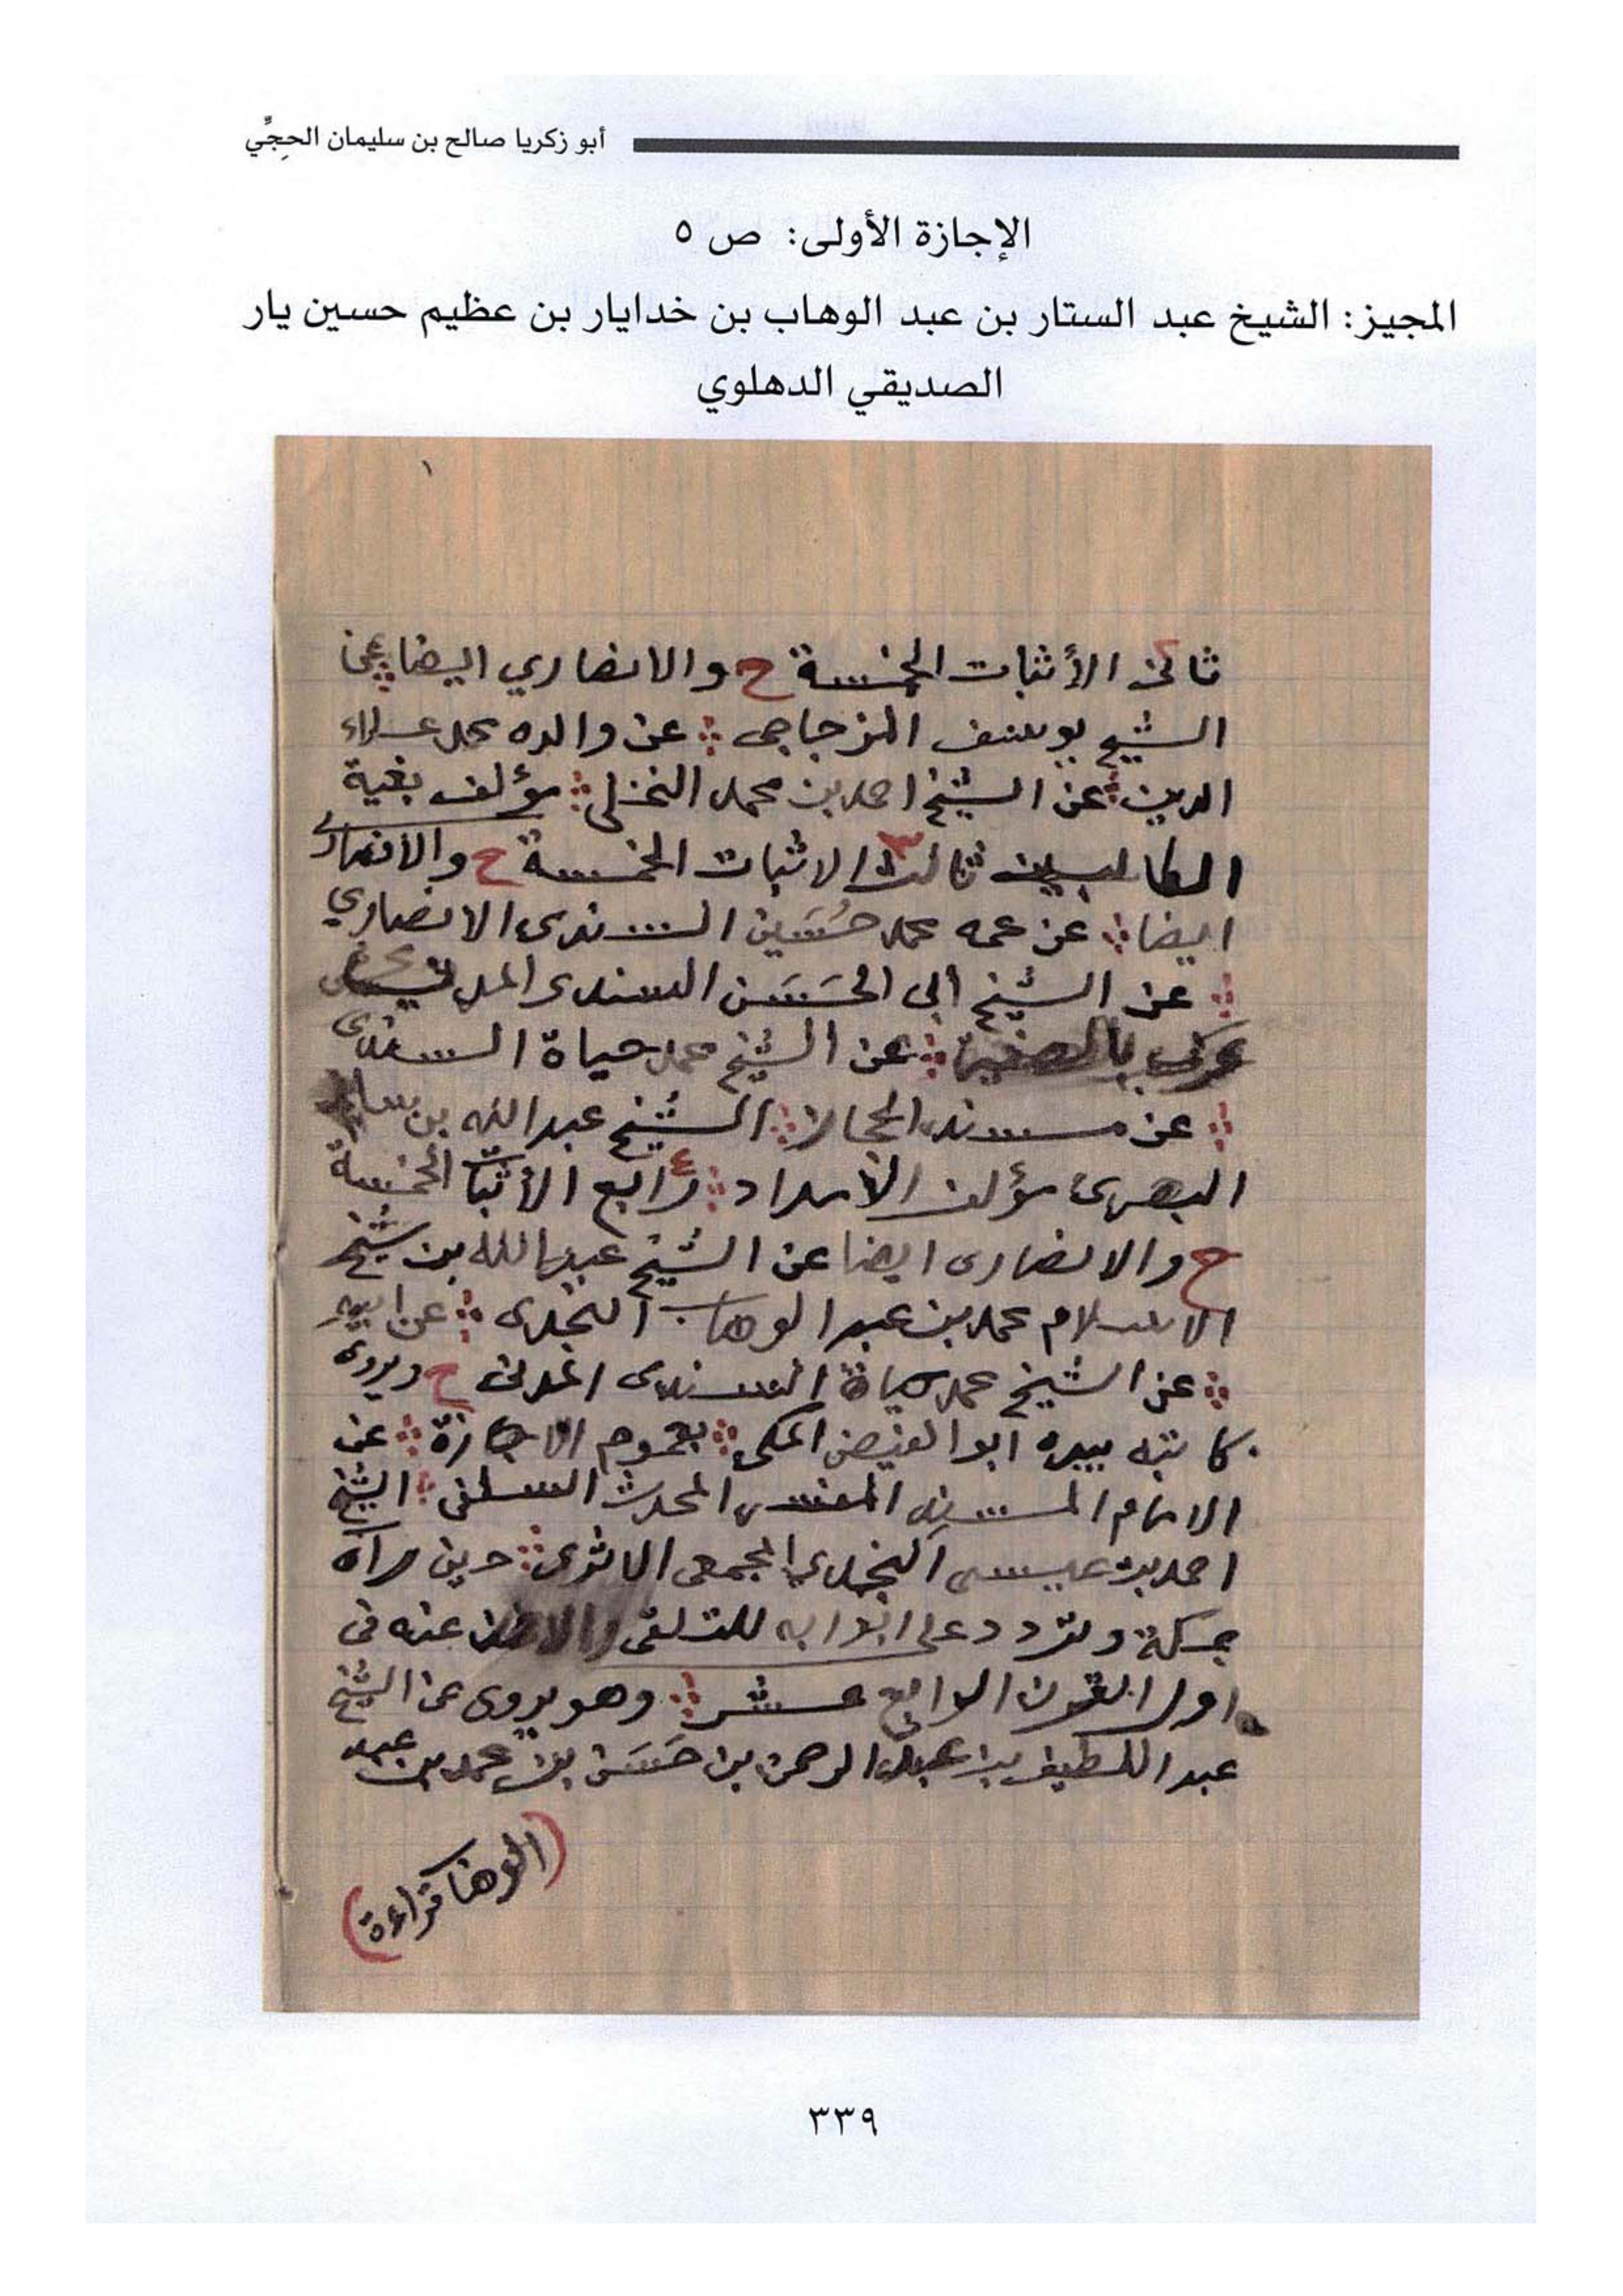 أبو زكريا صالح بن سليمان الحِجِّي
الإجازة الأولى: ص ٥
المجيز: الشيخ عبد الستار بن عبد الوهاب بن خدايار بن عظيم حسين يار
الصديقي الدهلوي
١
ثانى الأثبات الخمسة ح والانصاري ايضا عن
الشيخ يوسف المزجاجى عن والده محمد علاء
الدين عن الشيخ احمد بن محمد النخلى مؤلف بغية
الطالبين ثالث ٣ الاثبات الخمسة ح والأنصارى
ايضا عن عمه محمد حُسَين السندى الانصاري
عن الشيخ ابى الحَسَن السندى المدنى
بالصغير عن الشيخ محمد حياة السندى
عن مسند الحجاز الشيخ عبد الله بن سالم
البصرى مؤلف الأمداد ٤ رابع الأثبات الخمسة
ح والانصارى ايضا عن الشيخ عبد الله بن شيخ
الاسلام محمد بن عبد الوهاب النجدى عن ابيه
عن الشيخ محمد حياة السندى المدنى ح ويروى
كاتبه بيده ابو الفيض المكى بعموم الاجازة عن
الامام المسند المفسر المحدث السلفى الشيخ
احمد بن عيسى النجدي المجمعى الاثرى حين رآه
بمكة وتردد على ابوابه للتلقى والاخذ عنه فى
اول القرن الرابع عشر وهو يروى عن الشيخ
عبد اللطيف بن عبد الرحمن بن حَسَن بن محمد بن عبد
(الوهاب قراءة)
٣٣٩